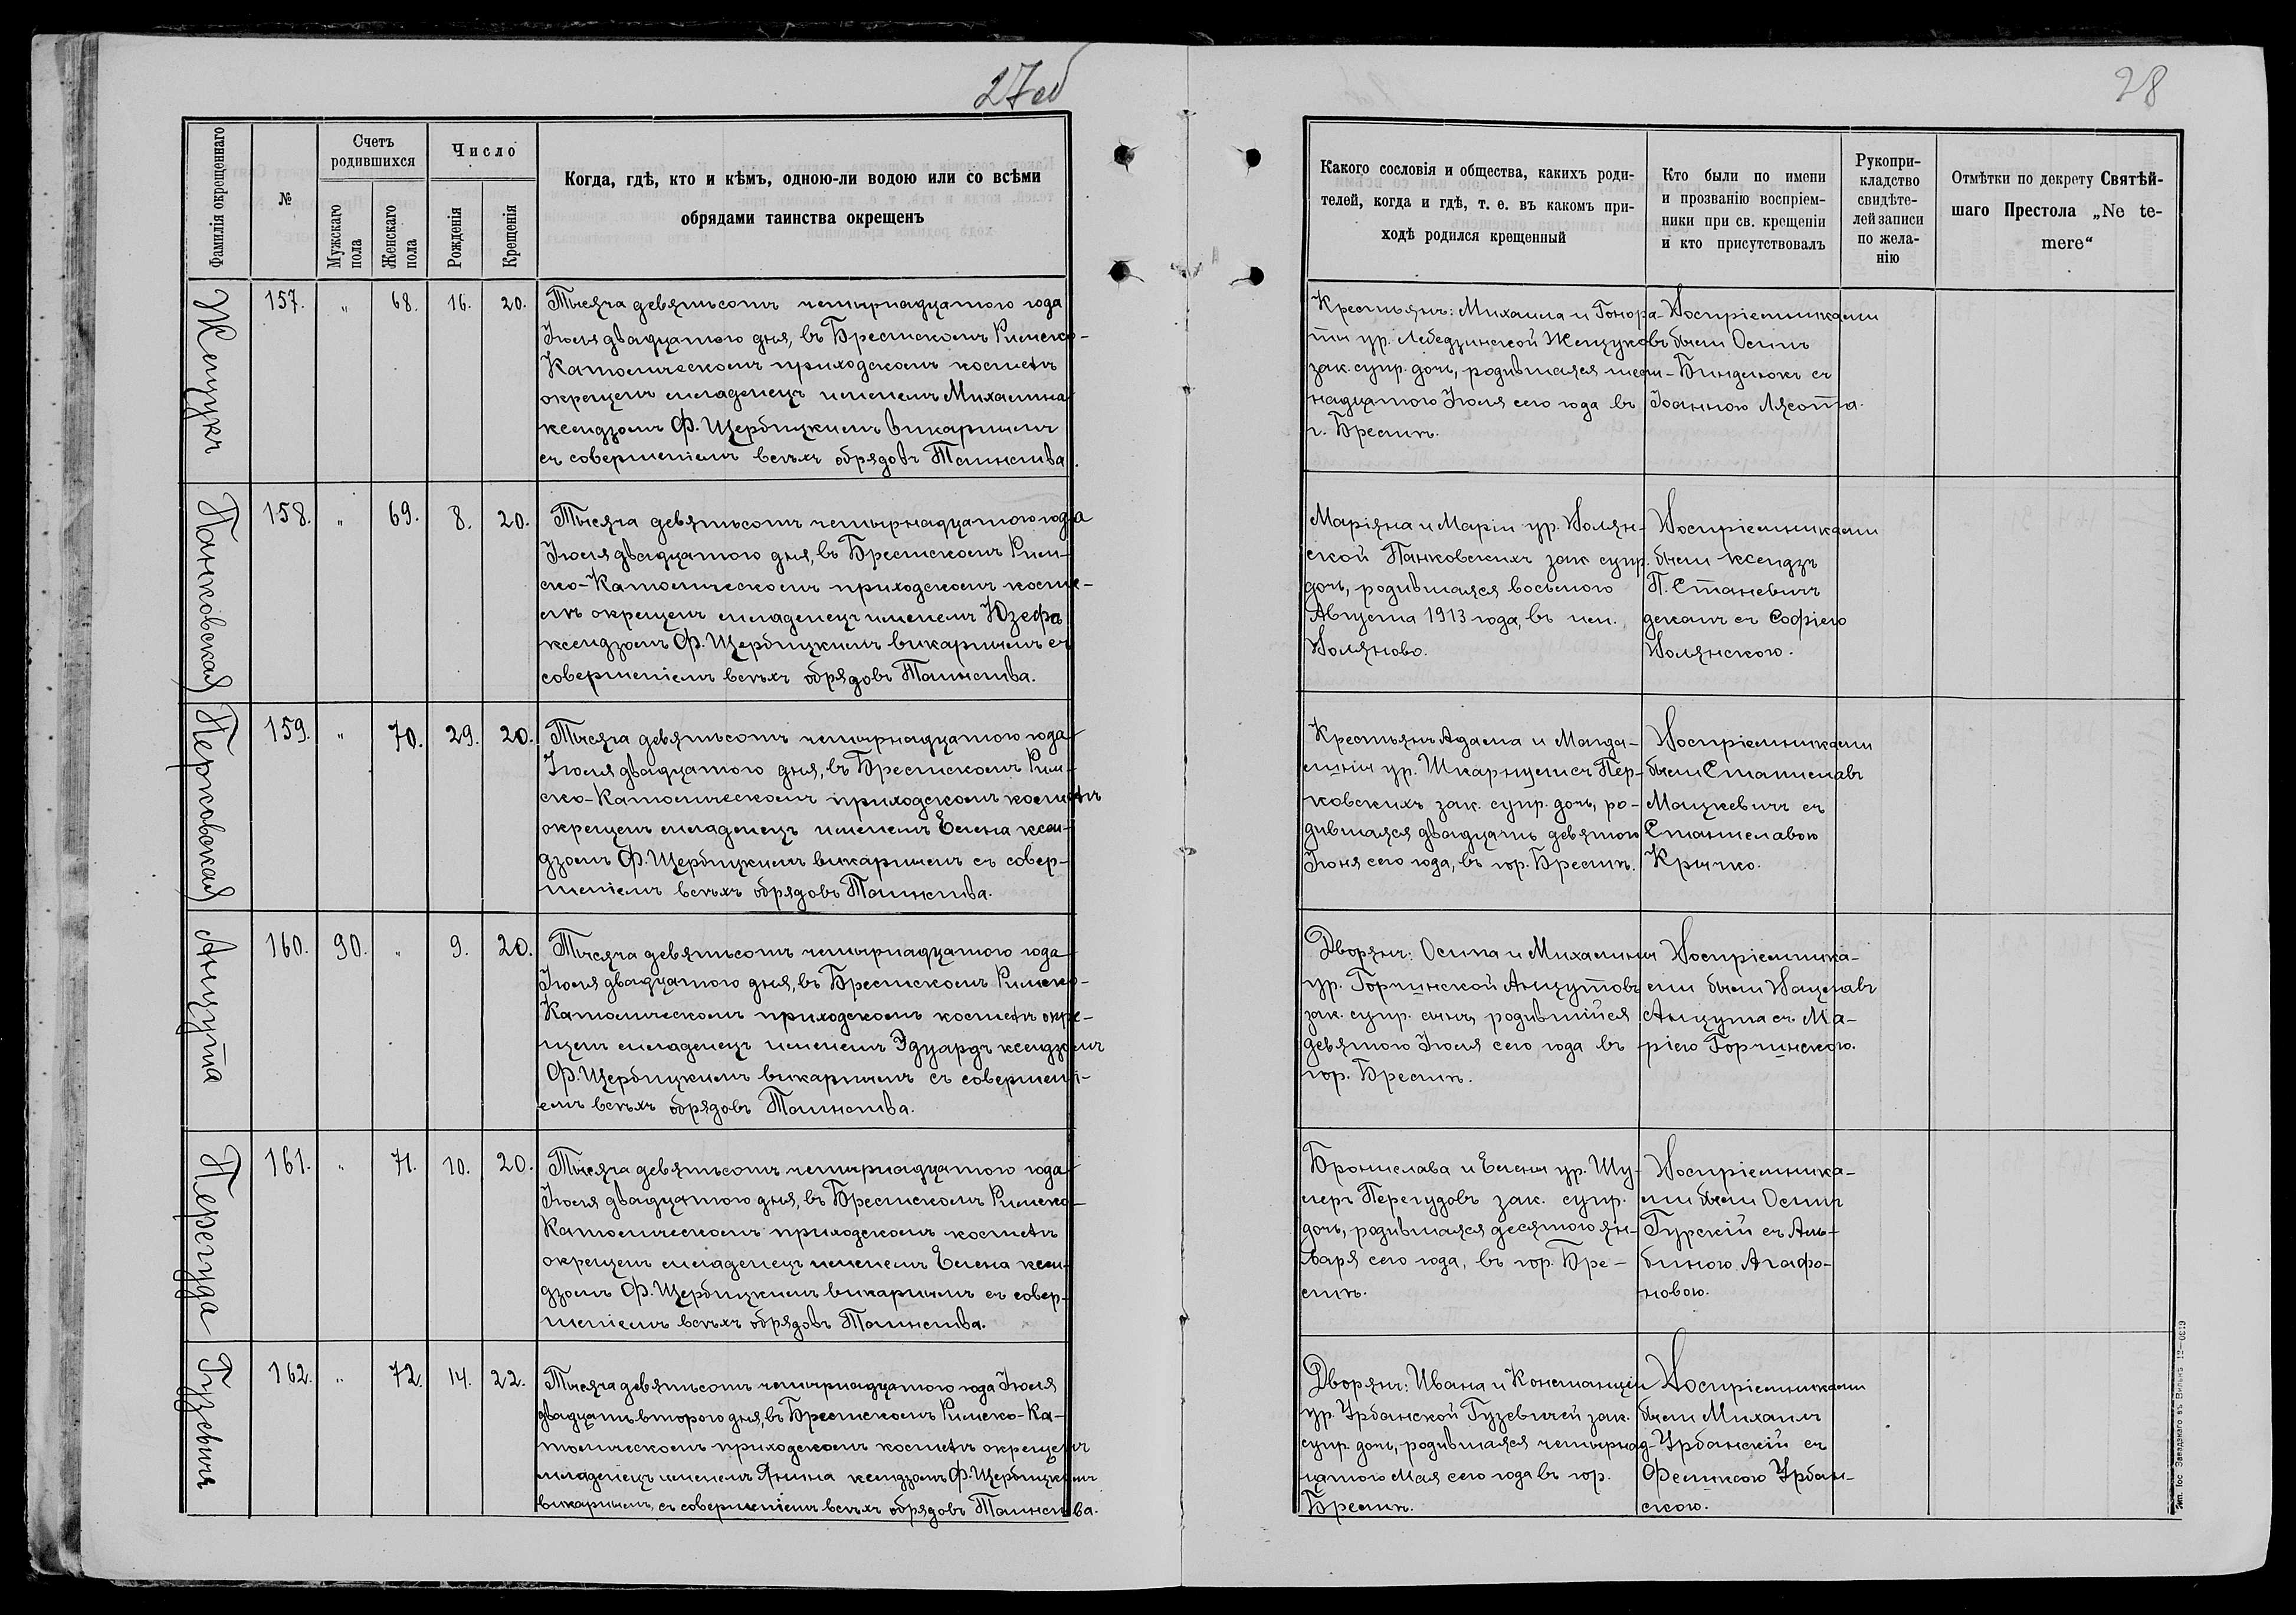 27об
Фамилія окрещеннаго
№
Счетъ
родившихся
Мужскаго
пола
Женскаго
пола
Число
Рожденія
Крещенія
Когда, гдѣ, кто и кѣмъ, одною-ли водою или со всѣми
обрядами таинства окрещенъ
Жещукъ
157. „ 68. 16. 20.
Тысяча девятьсотъ четырнадцатого года
Іюля двадцатого дня, въ Брестскомъ Римско-
Католическомъ приходскомъ костелѣ
окрещенъ младенецъ именемъ Михалина
ксендзомъ Ф. Щербицкимъ викарнымъ
съ совершеніемъ всѣхъ обрядовъ Таинства.
Панковская
158. „ 69. 8. 20.
Тысяча девятьсотъ четырнадцатого года
Іюля двадцатого дня, въ Брестскомъ Рим-
ско-Католическомъ приходскомъ косте-
лѣ окрещенъ младенецъ именемъ Юзефа
ксендзомъ Ф. Щербицкимъ викарнымъ съ
совершеніемъ всѣхъ обрядовъ Таинства.
Перковская
159. „ 70. 29. 20.
Тысяча девятьсотъ четырнадцатого года
Іюля двадцатого дня, въ Брестскомъ Рим-
ско-Католическомъ приходскомъ костелѣ
окрещенъ младенецъ именемъ Елена ксен-
дзомъ Ф. Щербицкимъ викарнымъ съ совер-
шеніемъ всѣхъ обрядовъ Таинства.
Анцута
160. 90. „ 9. 20.
Тысяча девятьсотъ четырнадцатого года
Іюля двадцатого дня, въ Брестскомъ Римско-
Католическомъ приходскомъ костелѣ окре-
щенъ младенецъ именемъ Эдуардъ ксендзомъ
Ф. Щербицкимъ викарнымъ съ совершені-
емъ всѣхъ обрядовъ Таинства.
Перегуда
161. „ 71. 10. 20.
Тысяча девятьсотъ четырнадцатого года
Іюля двадцатого дня, въ Брестскомъ Римско-
Католическомъ приходскомъ костелѣ
окрещенъ младенецъ именемъ Елена ксен-
дзомъ Ф. Щербицкимъ викарнымъ съ совер-
шеніемъ всѣхъ обрядовъ Таинства.
Гузевичъ
162. „ 72. 14. 22.
Тысяча девятьсотъ четырнадцатого года Іюля
двадцать второго дня, въ Брестскомъ Римско-Ка-
толическомъ приходскомъ костелѣ окрещенъ
младенецъ именемъ Янина ксендзомъ Ф. Щербицкимъ
викарнымъ, съ совершеніемъ всѣхъ обрядовъ Таинства.
28
Какого сословія и общества, какихъ роди-
телей, когда и гдѣ, т. е. въ какомъ при-
ходѣ родился крещенный
Кто были по имени
и прозванію воспріем-
ники при св. крещеніи
и кто присутствовалъ
Рукопри-
кладство
свидѣте-
лей записи
по жела-
нію
Отмѣтки по декрету Святѣй-
шаго Престола „Ne te-
mere“
Крестьянъ: Михаила и Гонора-
ты ур. Лебедзинской Жещуковъ
зак. супр. дочь, родившаяся шест-
надцатого Іюля сего года въ
г. Брестѣ.
Воспріемниками
были Осипъ
Биндюкъ съ
Іоанною Лясота.
Маріяна и Маріи ур. Волян-
ской Панковскихъ зак супр.
дочь, родившаяся восьмого
Августа 1913 года, въ им.
Воляново.
Воспріемниками
были ксендзъ
П. Станевичъ
деканъ съ Софіею
Волянскою.
Крестьянъ Адама и Магда-
лины ур. Шкарнулисъ Пер-
ковскихъ зак. супр. дочь, ро-
дившаяся двадцать девятого
Іюня сего года, въ гор. Брестѣ.
Воспріемниками
были Станиславъ
Мацкевичъ съ
Станиславою
Крычко.
Дворянъ: Осипа и Михалины
ур. Горчинской Анцутовъ
зак. супр. сынъ, родившійся
девятого Іюля сего года въ
гор. Брестѣ.
Воспріемника-
ми были Вацлавъ
Анцута съ Ма-
ріею Горчинскою.
Бронислава и Елены ур. Шу-
леръ Перегудовъ зак. супр.
дочь, родившаяся десятого ян-
варя сего года, въ гор. Бре-
стѣ.
Воспріемника-
ми были Осипъ
Гурскій съ Аль-
биною Агафо-
новою.
Дворянъ: Ивана и Констанціи
ур. Урбанской Гузевичей зак.
супр. дочь, родившаяся четырнад-
цатого Мая сего года въ гор.
Брестѣ.
Воспріемниками
были Михаилъ
Урбанскій съ
Феликсою Урбан-
скою.
Тип. Іос. Завадзкаго въ Вильнѣ